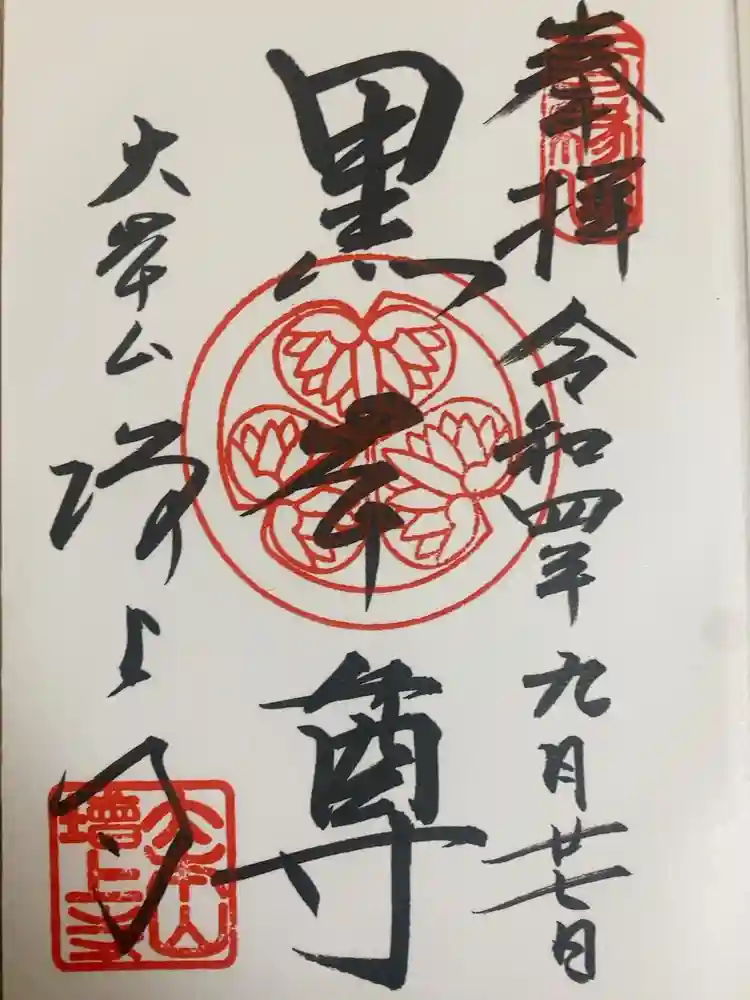 奉拝 令和四年九月廿七日
黒本尊
大本山 増上寺
大本山
增上寺